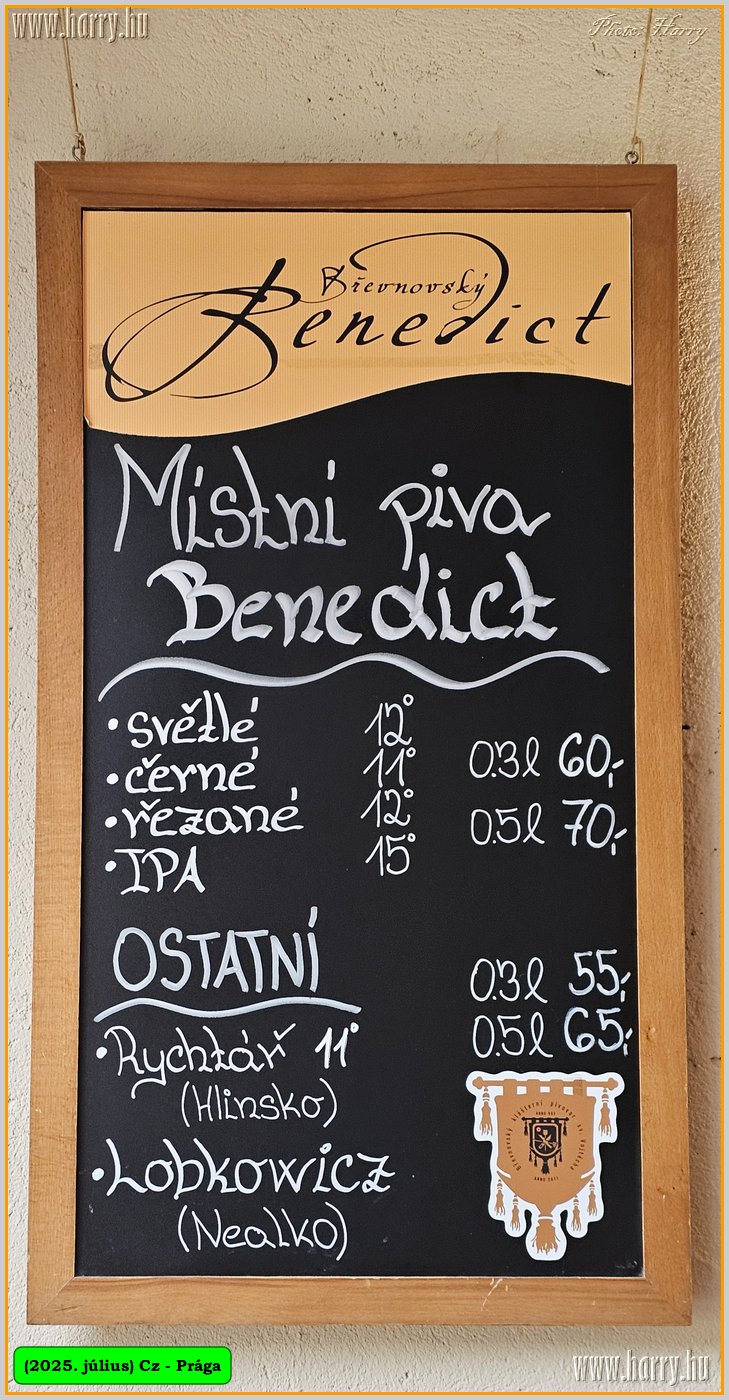 www.harry.hu
Photo: Harry
Břevnovský
Benedict
Místní piva
Benedict
• světlé 12°
• černé 11°
0.3l 60,-
• řezané 12°
0.5l 70,-
• IPA 15°
OSTATNÍ
0.3l 55,-
0.5l 65,-
• Rychtář 11°
(Hlinsko)
• Lobkowicz
(Nealko)
Břevnovský klášterní pivovar sv. Vojtěcha
ANNO 993
ANNO 2011
(2025. július) Cz - Prága
www.harry.hu